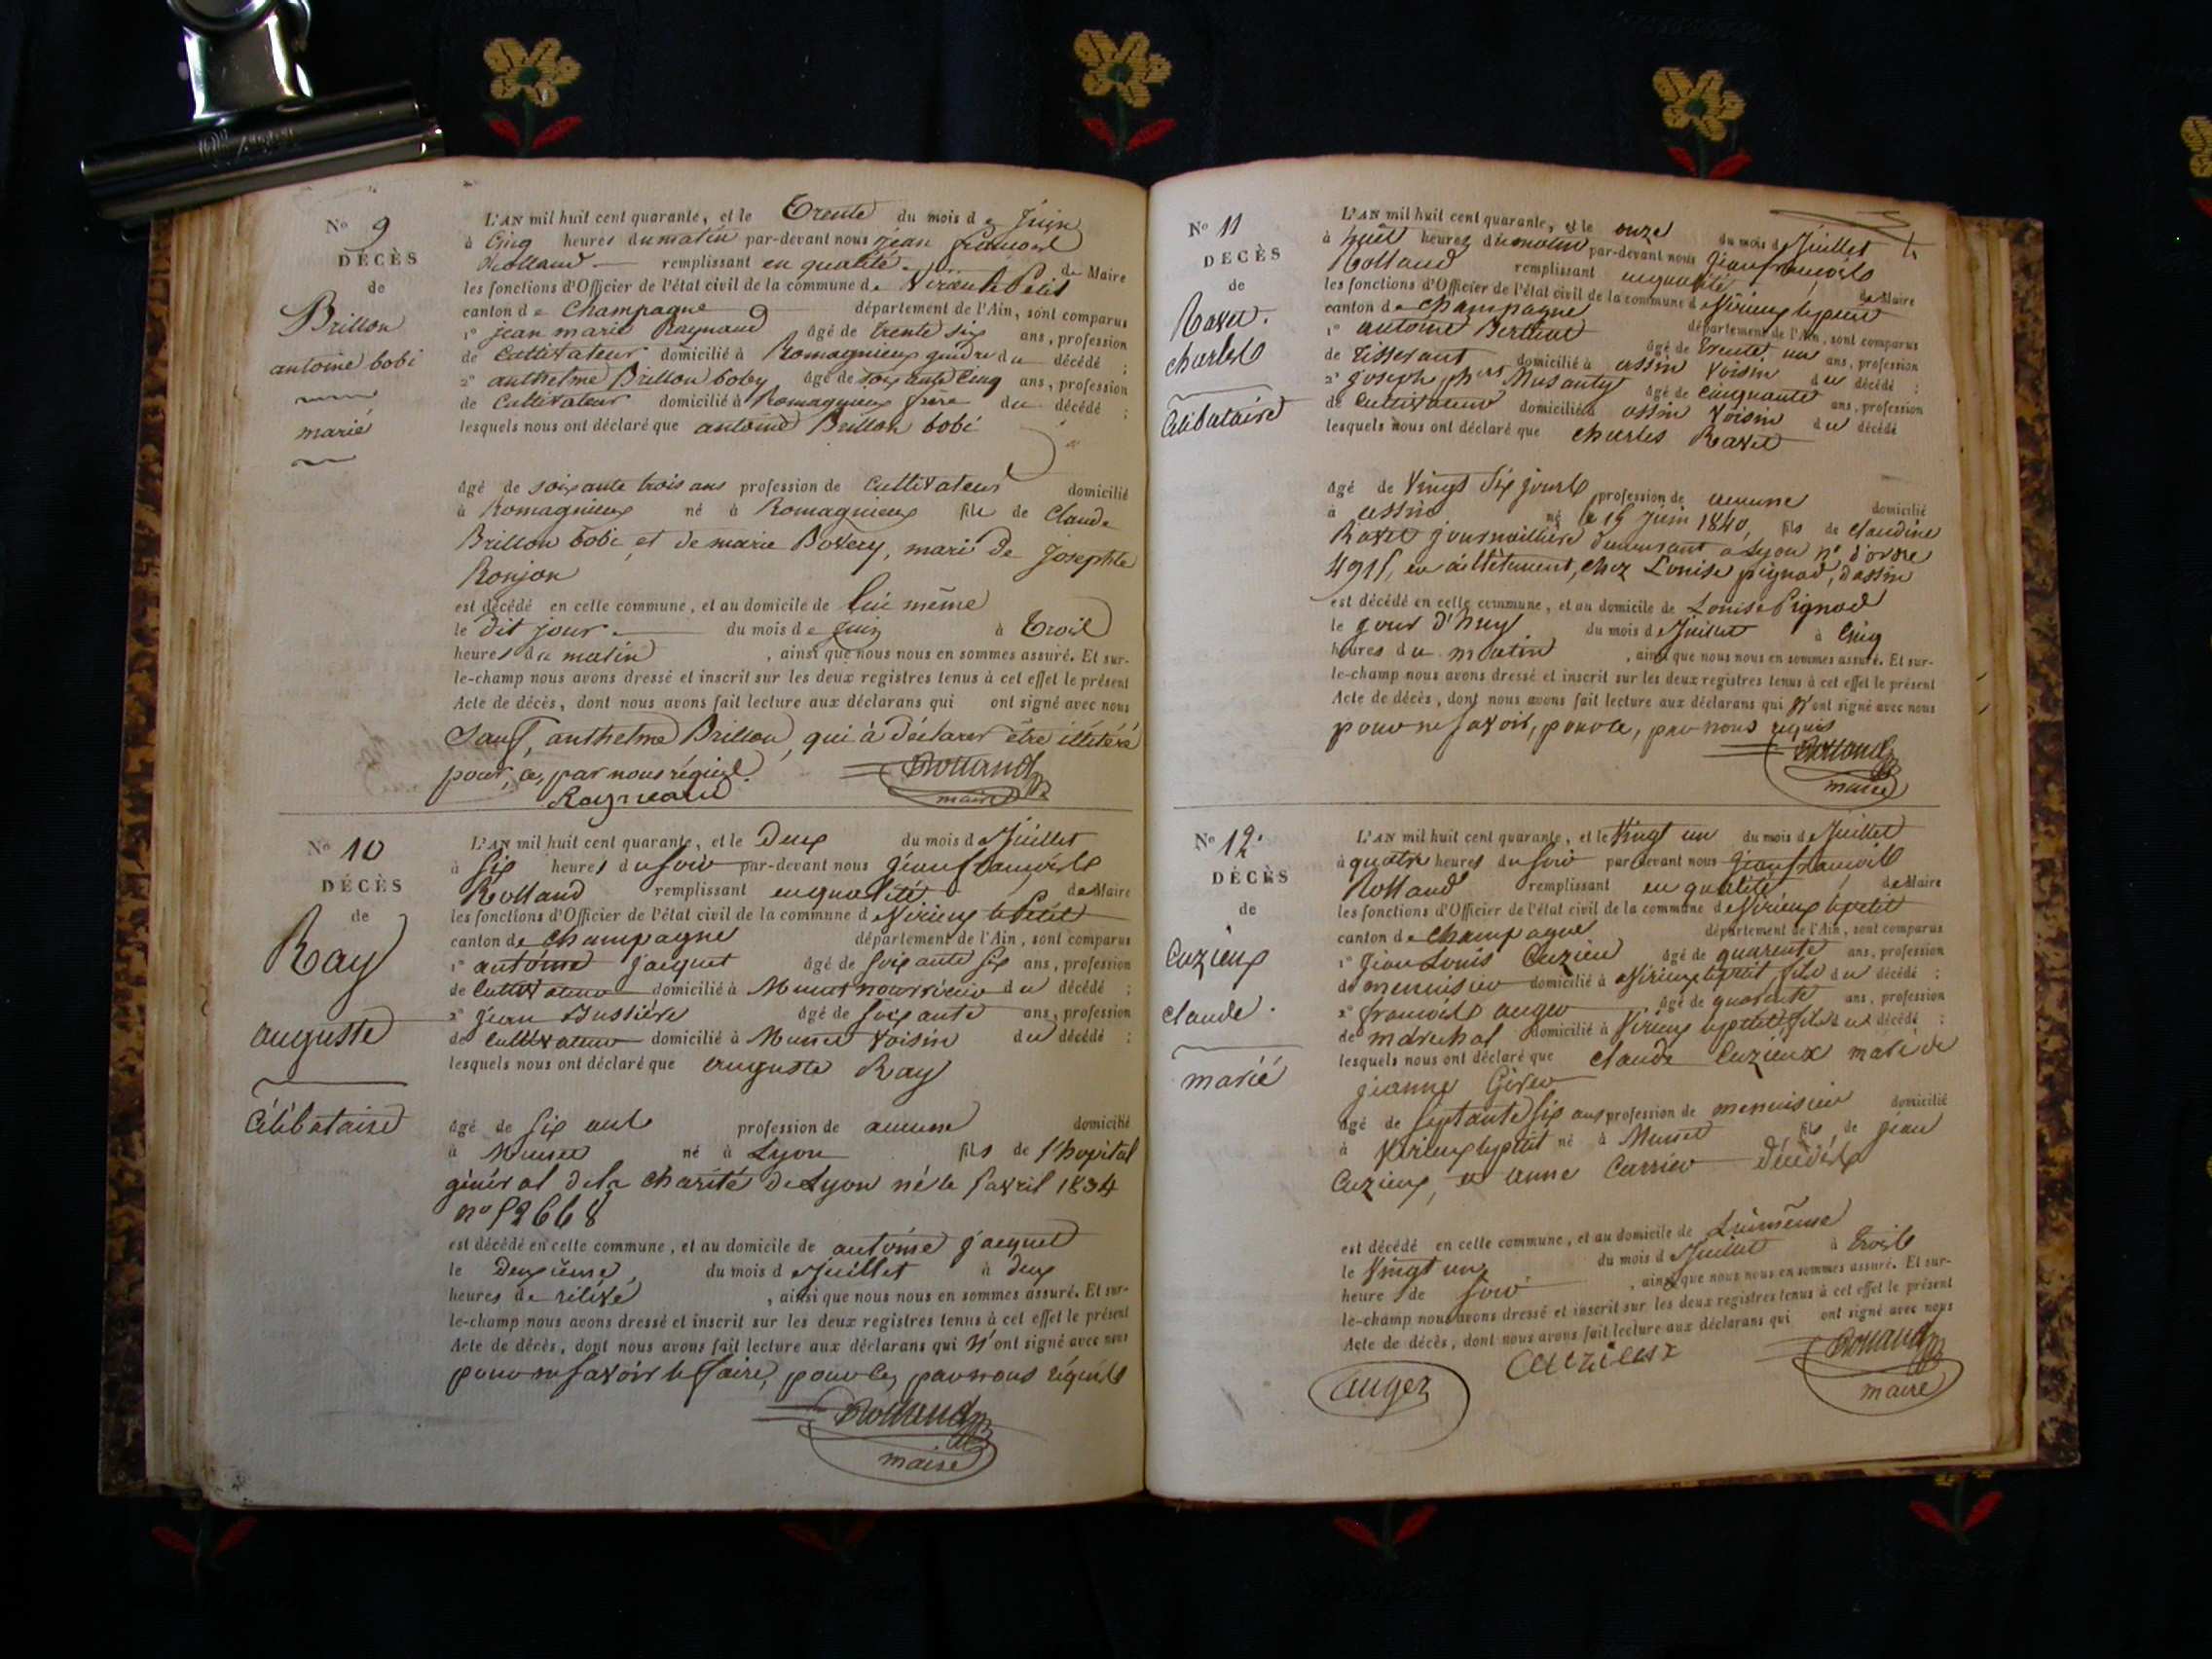 N° 9
DÉCÈS
de
Brillon
antoine bobi
marié
L'AN mil huit cent quarante, et le Trente du mois de Juin
à Cinq heures du matin par-devant nous jean francois
Rolland remplissant en qualité de Maire
les fonctions d'Officier de l'état civil de la commune de Virieu le Petit
canton de Champagne département de l'Ain, sont comparus
1° jean marie Raynaud âgé de trente six ans, profession
de Cultivateur domicilié à Romagnieux gendre du décédé ;
2° anthelme Brillon boby âgé de soixante cinq ans, profession
de Cultivateur domicilié à Romagnieux frere du décédé ;
lesquels nous ont déclaré que antoine Brillon bobi
âgé de soixante trois ans profession de Cultivateur domicilié
à Romagnieux né à Romagnieux fils de Claude
Brillon bobi et de marie Bovery, mari de Josephte
Ronjon
est décédé en cette commune, et au domicile de lui même
le dit jour du mois de Juin à Trois
heures du matin , ainsi que nous nous en sommes assuré. Et sur-
le-champ nous avons dressé et inscrit sur les deux registres tenus à cet effet le présent
Acte de décès, dont nous avons fait lecture aux déclarans qui ont signé avec nous
Sauf, anthelme Brillon, qui à déclaré être illétéré
pour ce, par nous régui.
Raynaud
Rolland
maire
N° 10
DÉCÈS
de
Ray
auguste
Célibataire
L'AN mil huit cent quarante, et le Deux du mois de Juillet
à Six heures du soir par-devant nous jean francois
Rolland remplissant en qualité de Maire
les fonctions d'Officier de l'état civil de la commune de Virieux le Petit
canton de Champagne département de l'Ain, sont comparus
1° antoine jacquet âgé de soixante six ans, profession
de Cultivateur domicilié à Munet nourricier du décédé ;
2° jean Bussiere âgé de soixante ans, profession
de Cultivateur domicilié à Munet Voisin du décédé ;
lesquels nous ont déclaré que auguste Ray
âgé de six ans profession de aucune domicilié
à Munet né à Lyon fils de l'hopital
général de la charité de Lyon né le 5 avril 1834
n° 52668
est décédé en cette commune, et au domicile de antoine jacquet
le Deuxieme du mois de Juillet à deux
heures de rélevé , ainsi que nous nous en sommes assuré. Et sur-
le-champ nous avons dressé et inscrit sur les deux registres tenus à cet effet le présent
Acte de décès, dont nous avons fait lecture aux déclarans qui N'ont signé avec nous
pour ne savoir le faire, pour ce, par nous réquis
Rolland
maire
N° 11
DÉCÈS
de
Ravet.
charles
Célibataire
L'AN mil huit cent quarante, et le onze du mois de Juillet
à huit heures du matin par-devant nous jean francois
Rolland remplissant en qualité de Maire
les fonctions d'Officier de l'état civil de la commune de Virieux le petit
canton de Champagne département de l'Ain, sont comparus
1° antoine Berthet âgé de trente un ans, profession
de Tisserant domicilié à assin Voisin du décédé ;
2° joseph âgé de Cinquante ans, profession
de Cultivateur domicilié à assin Voisin du décédé
lesquels nous ont déclaré que charles Ravet
âgé de Vingt six jours profession de aucune domicilié
à assin né le 15 Juin 1840, fils de Claudine
Ravet journaillière demeurant a Lyon n° d'ordre
4915, en aillètement, chez Louise pignod, d'assin
est décédé en cette commune, et au domicile de Louise Pignod
le jour d'huy du mois de Juillet à Cinq
heures du matin , ainsi que nous nous en sommes assuré. Et sur-
le-champ nous avons dressé et inscrit sur les deux registres tenus à cet effet le présent
Acte de décès, dont nous avons fait lecture aux déclarans qui N'ont signé avec nous
pour ne savoir, pour ce, par nous requis
Rolland
maire
N° 12.
DÉCÈS
de
Cuzieux
claude.
marié
L'AN mil huit cent quarante, et le Vingt un du mois de Juillet
à quatre heures du soir par-devant nous jean francois
Rolland remplissant en qualité de Maire
les fonctions d'Officier de l'état civil de la commune de Virieux le petit
canton de Champagne département de l'Ain, sont comparus
1° jean Louis Cuzieu âgé de quarente ans, profession
de menuisier domicilié à Virieux le petit, fils du décédé ;
2° francois auger âgé de quarante ans, profession
de maréchal domicilié à Virieux le petit, fils du décédé ;
lesquels nous ont déclaré que claude Cuzieux mari de
jeanne
âgé de septante six ans profession de menuisier domicilié
à Virieux le petit né à Munet fils de jean
Cuzieux, et anne Carrier décédés
est décédé en cette commune, et au domicile de Lui même
le Vingt un du mois de Juillet à trois
heure de soir , ainsi que nous nous en sommes assuré. Et sur-
le-champ nous avons dressé et inscrit sur les deux registres tenus à cet effet le présent
Acte de décès, dont nous avons fait lecture aux déclarans qui ont signé avec nous
auger
Cuzieux
Rolland
maire